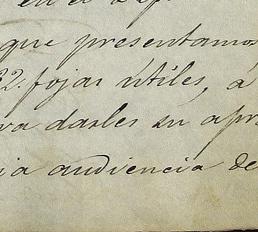 que presentamos
32. fojas útiles, á
va darles su apr
ia audiencia de